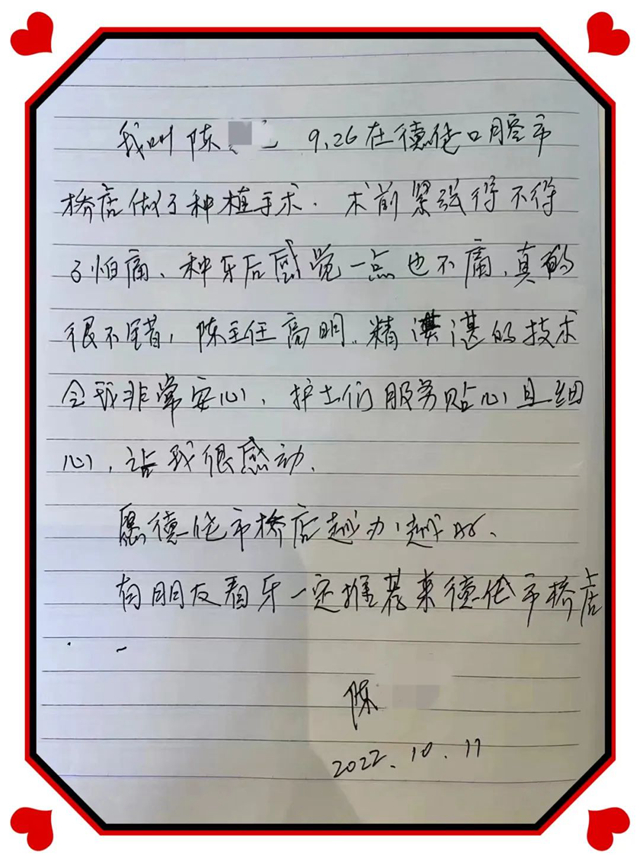 我叫陈 9.26在德伦口腔市
桥店做了种植手术. 术前紧张得不得
了怕痛、种牙后感觉一点也不痛、真的
很不错, 陈主任高明、精湛的技术
令我非常安心、护士们服务贴心且细
心, 让我很感动.
愿德伦市桥店越办越好、
有朋友看牙一定推荐来德伦市桥店
陈
2022.10.11